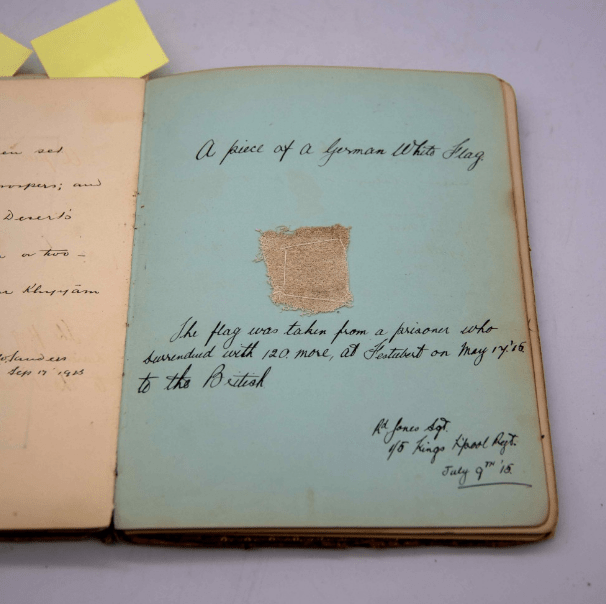 en set
oopers; and
Desert's
a two –
r Khayyám
Sep 17 1923
A piece of a German White Flag.
The flag was taken from a prisoner who
surrendred with 120 more, at Festubert on May 17.'15
to the British
Rd Jones Sgt.
1/5 Kings L'pool Regt.
July 9TH '15.